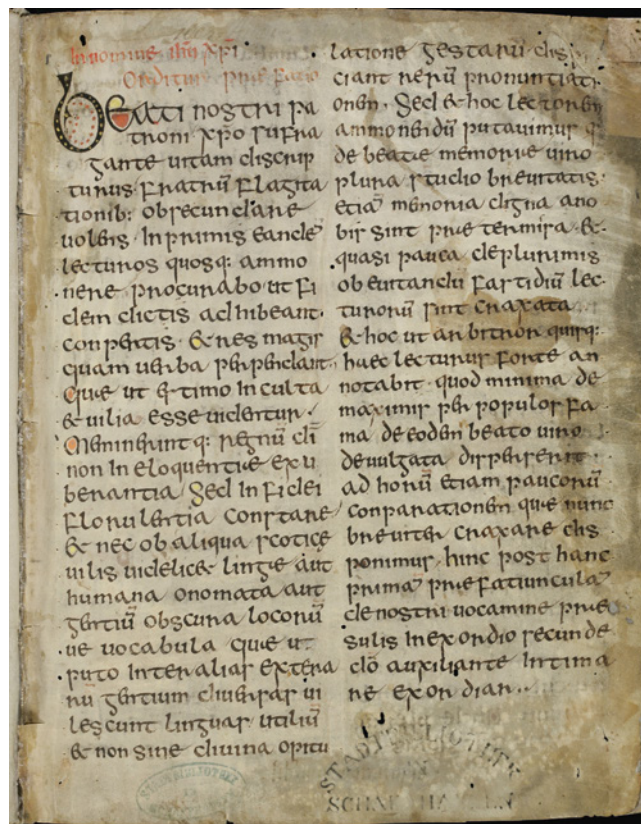 In nomine ihu xpi
Orditur praefatio
Beati nostri pa
troni xpo suffra
gante uitam discrip
turus fratrū flagita
tionib: obsecundare
uolens In primis eandē
lecturos quosq: ammo
nere procurabo ut fi
dem dictis adhibeant
conpertis & res magis
quam uerba perpendant
quæ ut estimo Inculta
& uilia esse uidentur
Meminerint q: regnū di
non In eloquentiæ exu
berantia Sed In fidei
florulentia constare
& nec ob aliqua scoticæ
uilis uidelic& lingæ aut
humana onomata aut
gentiū obscura locorū
ue uocabula quæ ut
puto Inter alias extera
rū gentium diuersas ui
lescunt linguas utiliū
& non sine diuina opitu
latione gestarū dis
ciant rerū pronuntiati
onem · Sed & hoc lectorem
ammonendū putauimus q
de beatæ memoriæ uiro
plura studio breuitatis
etiā memoria digna a no
bis sint præ termisa · &
quasi pauca de plurimis
ob euitandū fastidiū lec
torum sint craxata
& hoc ut arbitror quisq:
haec lecturus forte an
notabit · quod minima de
maximis per populos fa
ma de eodem beato uiro
deuulgata disperserit
ad horū etiam paucorū
conparationem quæ nunc
breuiter craxare dis
ponimus · hinc post hanc
primā præfatiunculā
de nostri uocamine præ
sulis In exordio secunde
dō auxiliante Intima
re exordiar
STADTBIBLIOTHEK
SCHAFFHAUSEN